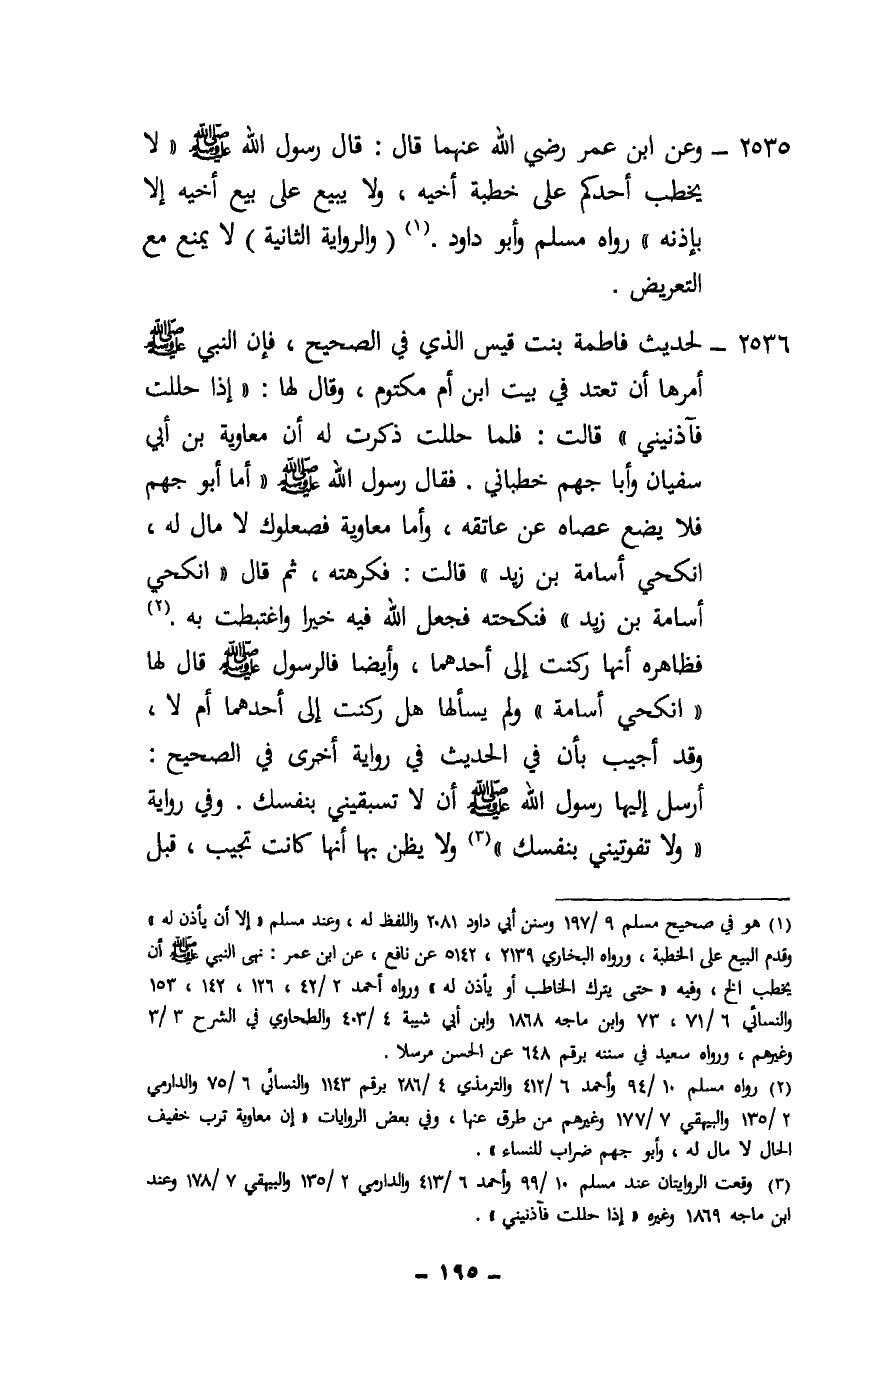 ٢٥٣٥ ــ وعن ابن عمر رضي الله عنهما قال : قال رسول الله ﷺ « لا
يخطب أحدكم على خطبة أخيه ، ولا يبيع على بيع أخيه إلا
بإذنه » رواه مسلم وأبو داود .(١) ( والرواية الثانية ) لا يمنع مع
التعريض .
٢٥٣٦ ــ لحديث فاطمة بنت قيس الذي في الصحيح ، فإن النبي ﷺ
أمرها أن تعتد في بيت ابن أم مكتوم ، وقال لها : « إذا حللت
فآذنيني » قالت : فلما حللت ذكرت له أن معاوية بن أبي
سفيان وأبا جهم خطباني . فقال رسول الله ﷺ « أما أبو جهم
فلا يضع عصاه عن عاتقه ، وأما معاوية فصعلوك لا مال له ،
انكحي أسامة بن زيد » قالت : فكرهته ، ثم قال « انكحي
أسامة بن زيد » فنكحته فجعل الله فيه خيرا واغتبطت به .(٢)
فظاهره أنها ركنت إلى أحدهما ، وأيضا فالرسول ﷺ قال لها
« انكحي أسامة » ولم يسألها هل ركنت إلى أحدهما أم لا ،
وقد أجيب بأن في الحديث في رواية أخرى في الصحيح :
أرسل إليها رسول الله ﷺ أن لا تسبقيني بنفسك . وفي رواية
« ولا تفوتيني بنفسك »(٣) ولا يظن بها أنها كانت تجيب ، قبل
(١) هو في صحيح مسلم ٩ /١٩٧ وسنن أبي داود ٢٠٨١ واللفظ له ، وعند مسلم « إلا أن يأذن له »
وقدم البيع على الخطبة ، ورواه البخاري ٢١٣٩ ، ٥١٤٢ عن نافع ، عن ابن عمر : نهى النبي ﷺ أن
يخطب الخ ، وفيه « حتى يترك الخاطب أو يأذن له » ورواه أحمد ٢ /٤٢ ، ١٢٦ ، ١٤٢ ، ١٥٣
والنسائي ٦ /٧١ ، ٧٣ وابن ماجه ١٨٦٨ وابن أبي شيبة ٤ /٤٠٣ والطحاوي في الشرح ٣ /٣
وغيرهم ، ورواه سعيد في سننه برقم ٦٤٨ عن الحسن مرسلا .
(٢) رواه مسلم ١٠ /٩٤ وأحمد ٦ /٤١٢ والترمذي ٤ /٢٨٦ برقم ١١٤٣ والنسائي ٦ /٧٥ والدارمي
٢ /١٣٥ والبيهقي ٧ /١٧٧ وغيرهم من طرق عنها ، وفي بعض الروايات « إن معاوية ترب خفيف
الحال لا مال له ، وأبو جهم ضراب للنساء » .
(٣) وقعت الروايتان عند مسلم ١٠ /٩٩ وأحمد ٦ /٤١٣ والدارمي ٢ /١٣٥ والبيهقي ٧ /١٧٨ وعند
ابن ماجه ١٨٦٩ وغيره « إذا حللت فآذنيني » .
ــ ١٦٥ ــ